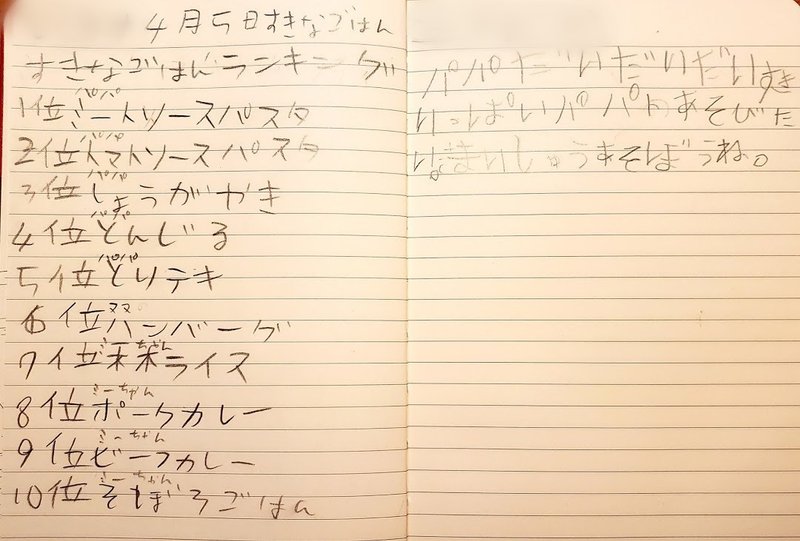 4月5日すきなごはん
すきなごはんランキング
パパ
1位ミートソースパスタ
パパ
2位トマトソースパスタ
パパ
3位しょうがやき
パパ
4位とんじる
パパ
5位とりテキ
ママ
6位ハンバーグ
ミーちゃん
7位ライス
ミーちゃん
8位ポークカレー
ミーちゃん
9位ビーフカレー
ミーちゃん
10位そぼろごはん
パパだいだいだいすき
いっぱいパパとあそびた
いな まいしゅうあそぼうね。